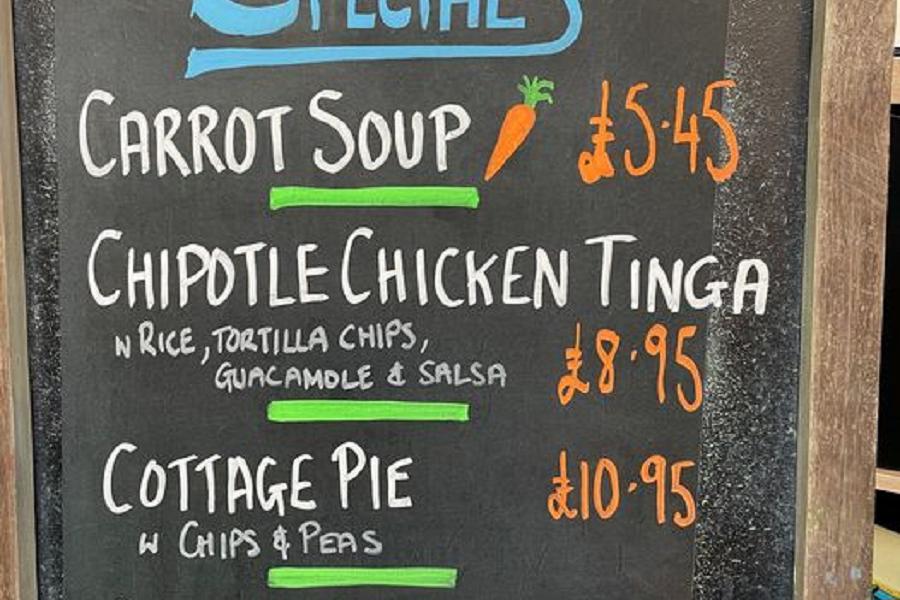 SPECIAL
CARROT SOUP £5.45
CHIPOTLE CHICKEN TINGA
W RICE, TORTILLA CHIPS,
GUACAMOLE & SALSA £8.95
COTTAGE PIE £10.95
W CHIPS & PEAS